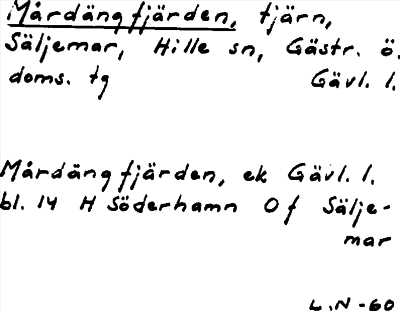 Mårdängfjärden, tjärn,
Säljemar, Hille sn, Gästr. ö.
doms. tg Gävl. l.
Mårdängfjärden, ek Gävl. l.
bl. 14 H Söderhamn Of Sälje-
mar
L.N-60